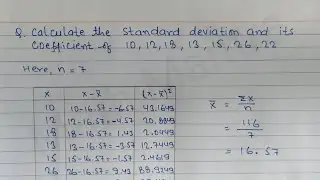 Q. Calculate the standard deviation and its
coefficient of 10, 12, 18, 13, 15, 26, 22
Here, n = 7
x x - x̄ (x - x̄)²
10 10-16.57 = -6.57 43.1649
12 12-16.57 = -4.57 20.8849
18 18-16.57 = 1.43 2.0449
13 13-16.57 = -3.57 12.7449
15 15-16.57 = -1.57 2.4649
26 26-16.57 = 9.43 88.9249
x̄ = Σx/n
= 116/7
= 16.57